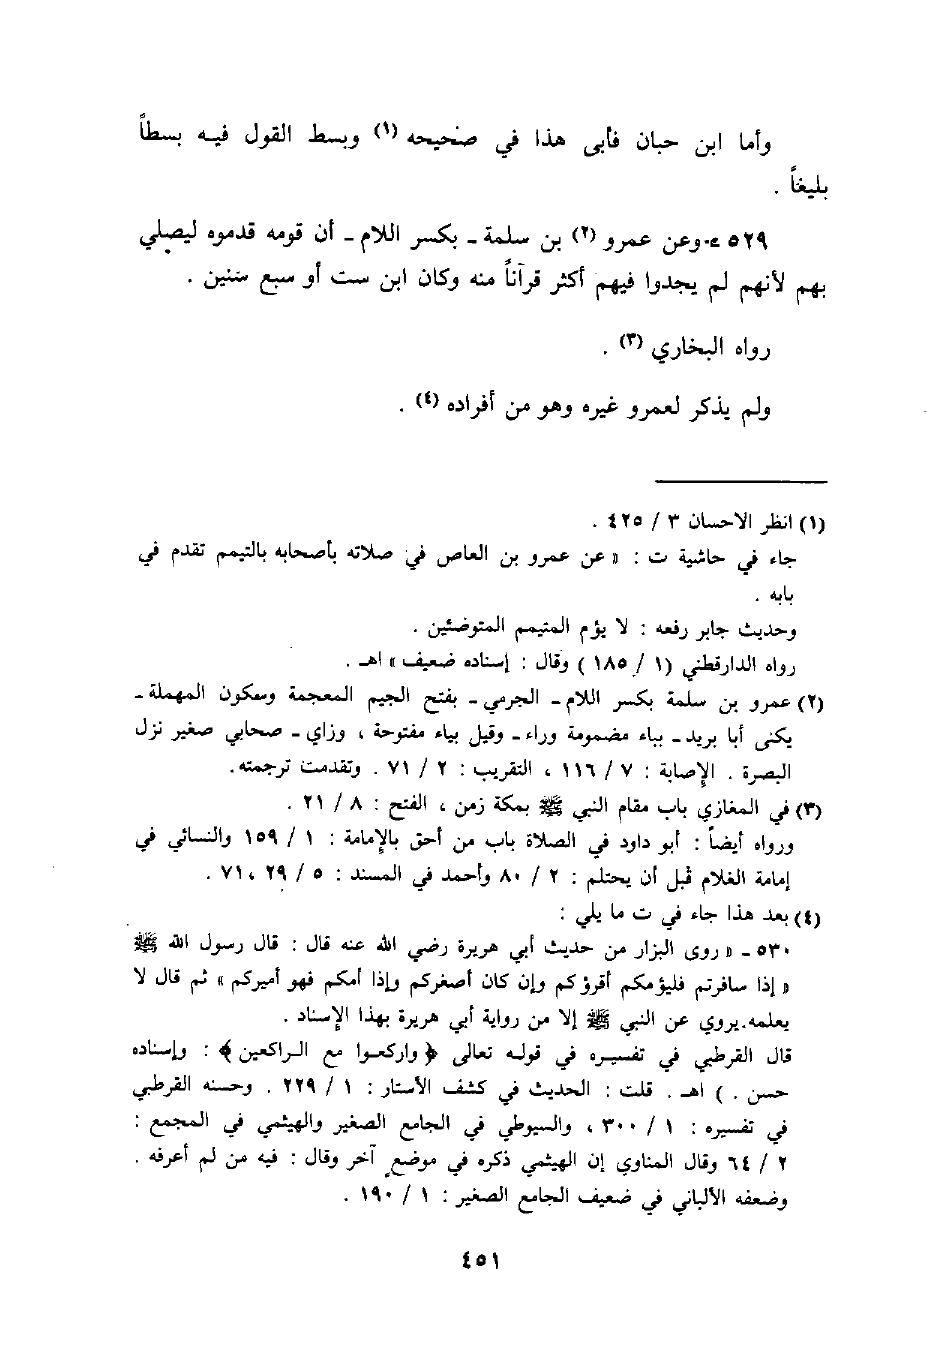 وأما ابن حبان فأبى هذا في صحيحه (١) وبسط القول فيه بسطاً
بليغاً .
٥٢٩ - وعن عمرو (٢) بن سلمة - بكسر اللام - أن قومه قدموه ليصلي
بهم لأنهم لم يجدوا فيهم أكثر قرآناً منه وكان ابن ست أو سبع سنين .
رواه البخاري (٣) .
ولم يذكر لعمرو غيره وهو من أفراده (٤) .
(١) انظر الاحسان ٣ / ٤٢٥ .
جاء في حاشية ت : « عن عمرو بن العاص في صلاته بأصحابه بالتيمم تقدم في
بابه .
وحديث جابر رفعه : لا يؤم المتيمم المتوضئين .
رواه الدارقطني (١ / ١٨٥ ) وقال : إسناده ضعيف » اهـ .
(٢) عمرو بن سلمة بكسر اللام - الجرمي - بفتح الجيم المعجمة وسكون المهملة -
يكنى أبا بريد - بباء مضمومة وراء - وقيل بياء مفتوحة ، وزاي - صحابي صغير نزل
البصرة . الإصابة : ٧ / ١١٦ ، التقريب : ٢ / ٧١ . وتقدمت ترجمته.
(٣) في المغازي باب مقام النبي ﷺ بمكة زمن ، الفتح : ٨ / ٢١ .
ورواه أيضاً : أبو داود في الصلاة باب من أحق بالإمامة : ١ / ١٥٩ والنسائي في
إمامة الغلام قبل أن يحتلم : ٢ / ٨٠ وأحمد في المسند : ٥ / ٢٩ ، ٧١ .
(٤) بعد هذا جاء في ت ما يلي :
٥٣٠ - « روى البزار من حديث أبي هريرة رضي الله عنه قال : قال رسول الله ﷺ
« إذا سافرتم فليؤمكم أقرؤكم وإن كان أصغركم وإذا أمكم فهو أميركم » ثم قال لا
يعلمه.يروي عن النبي ﷺ إلا من رواية أبي هريرة بهذا الإسناد .
قال القرطبي في تفسيره في قوله تعالى ﴿واركعوا مع الراكعين﴾ : وإسناده
حسن . ) اهـ . قلت : الحديث في كشف الأستار : ١ / ٢٢٩ . وحسنه القرطبي
في تفسيره : ١ / ٣٠٠ ، والسيوطي في الجامع الصغير والهيثمي في المجمع :
٢ / ٦٤ وقال المناوي إن الهيثمي ذكره في موضع آخر وقال : فيه من لم أعرفه .
وضعفه الألباني في ضعيف الجامع الصغير : ١ / ١٩٠ .
٤٥١